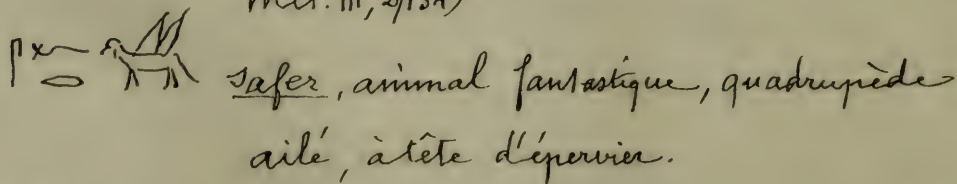 safer, animal fantastique, quadrupède
ailé, à tête d'épervier.